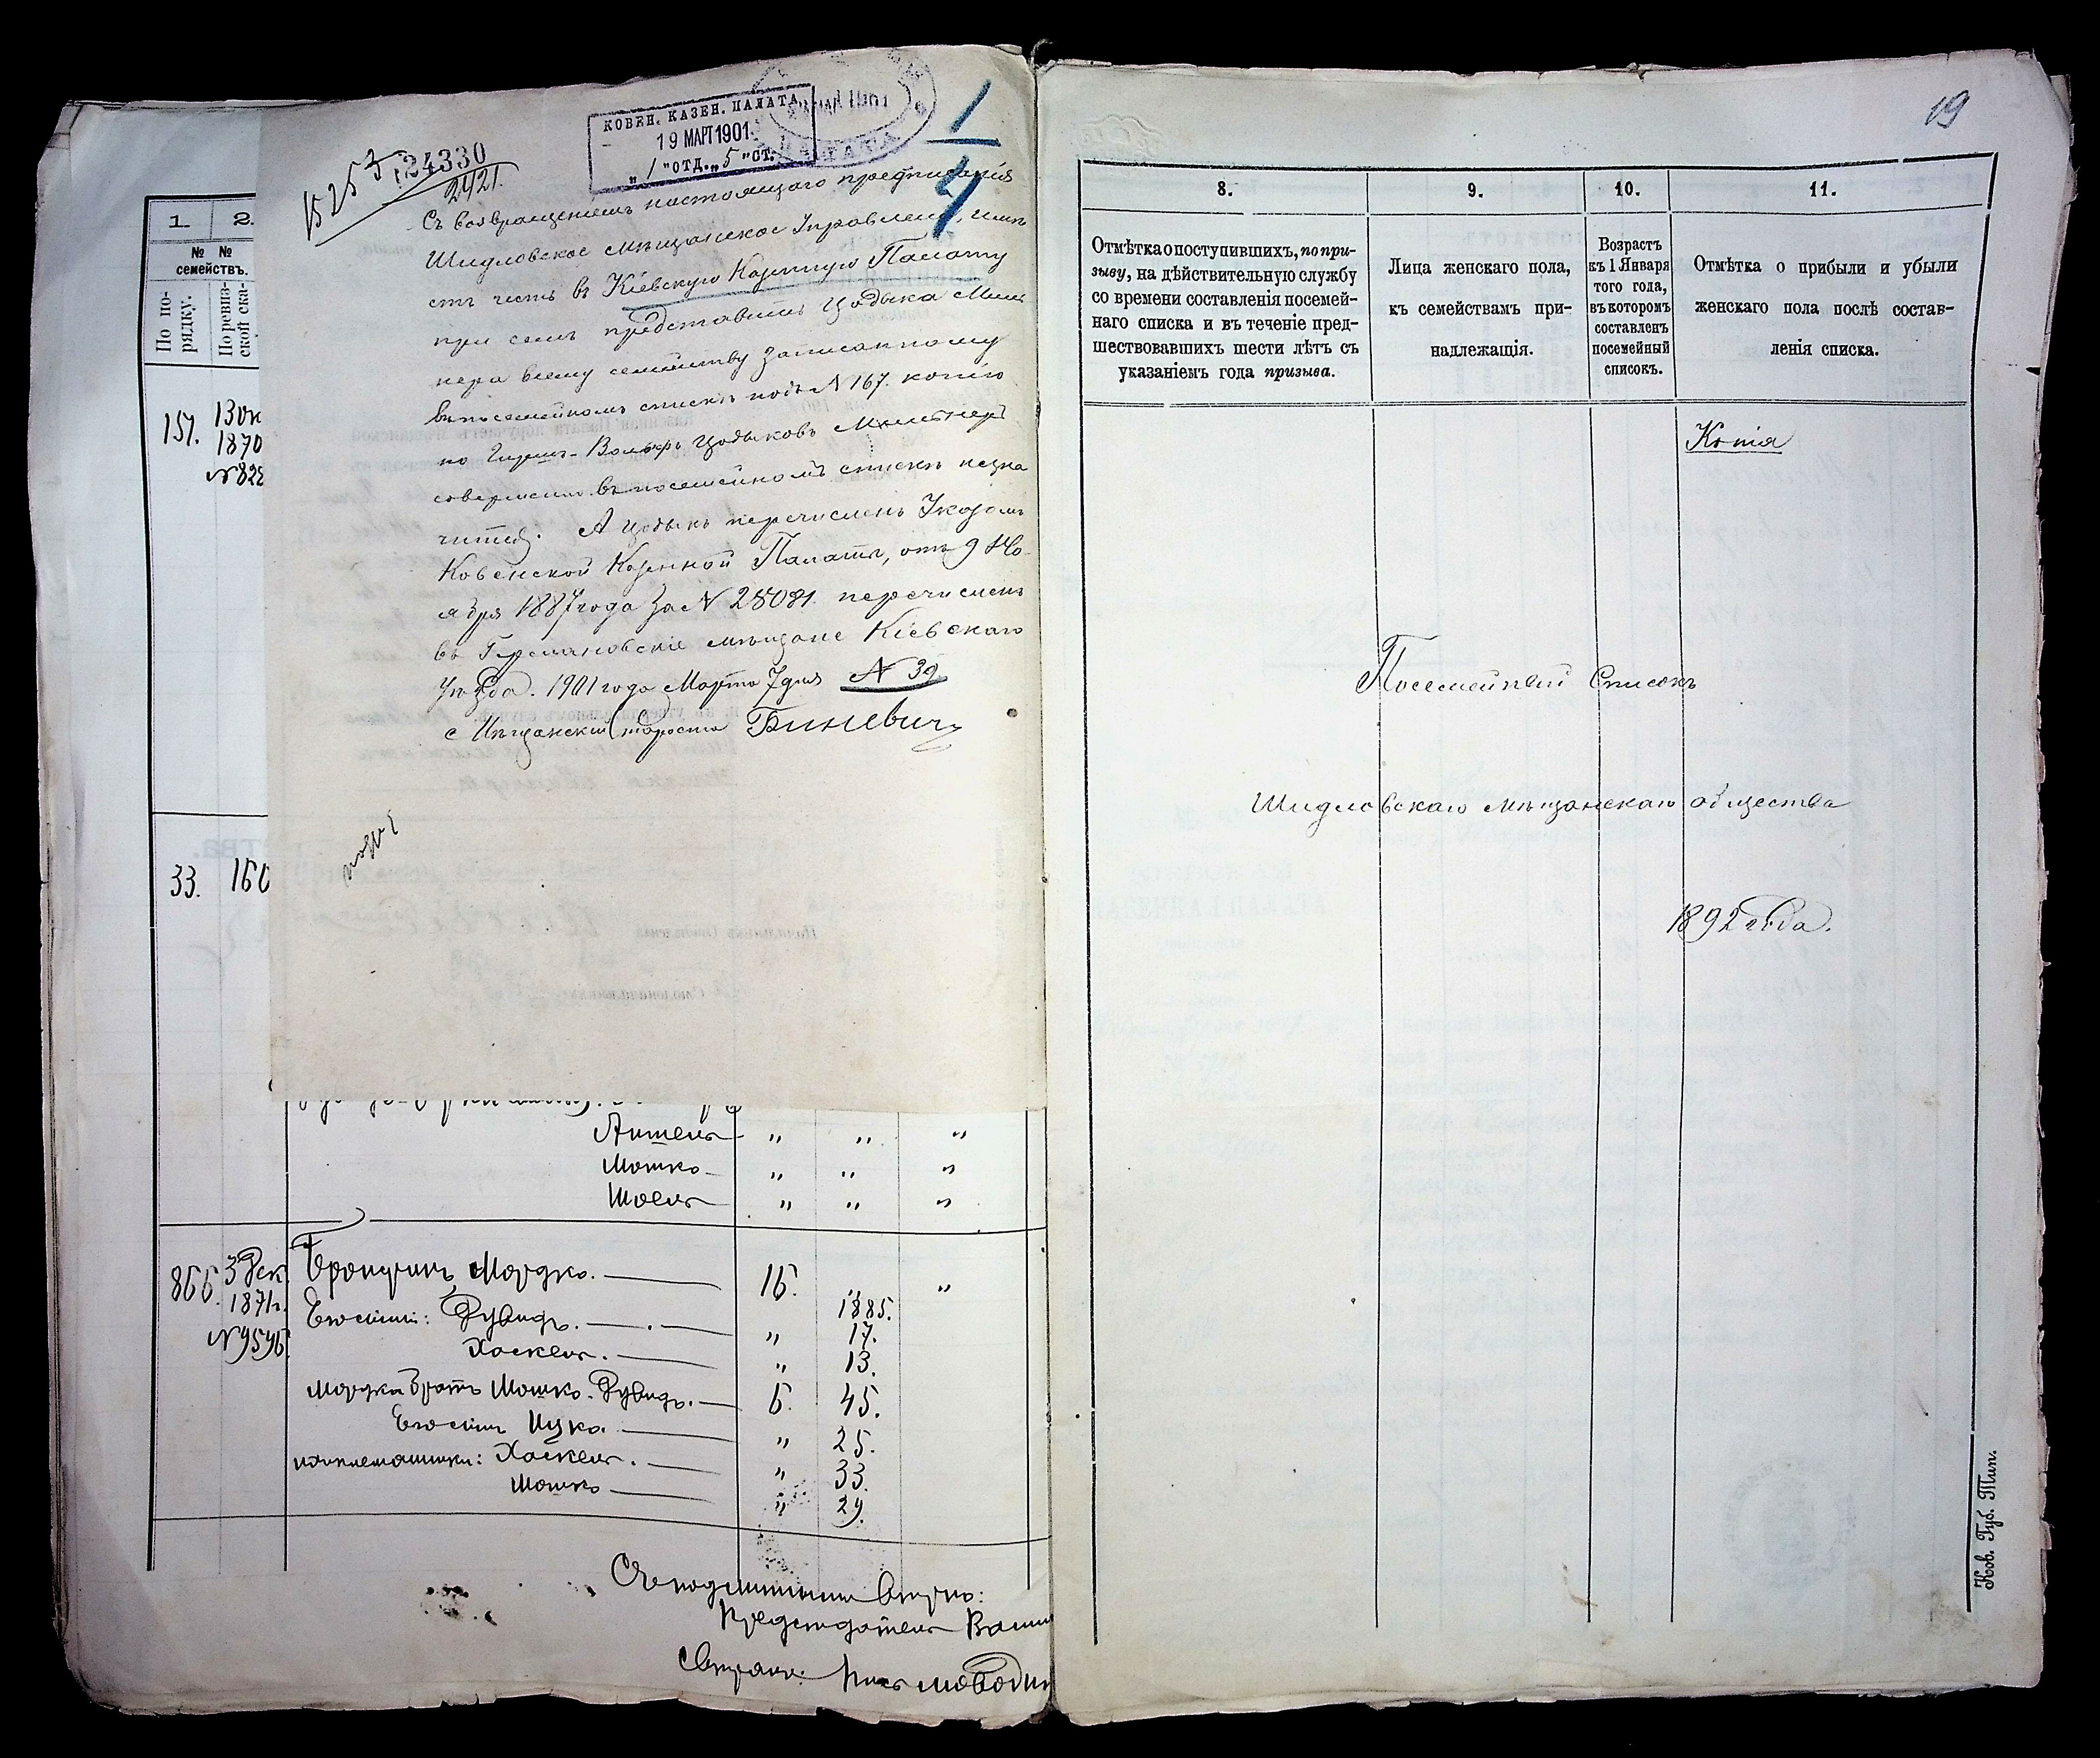 15253
124330
2421.
КОВЕН. КАЗЕН. ПАЛАТА
19 МАРТ 1901
„ 1 "ОТД. „ 5 "СТ.
1
4
Съ возвращеніемъ настоящаго предписанія
Шидловское мѣщанское Управленіе, имѣ
етъ честь въ Кіевскую Казенную Палату
при семъ представить Цодыка Миль
нера всему семейству записанному
въ посемейномъ спискѣ подъ № 167. копію
но Гирш-Вольфъ Цодыковъ Мильнеръ
совершенно въ посемейномъ спискѣ незна
чится. А Цодыкъ перечисленъ Указомъ
Ковенской Казенной Палаты, отъ 9 Но-
ября 1887 года за № 28081. перечисленъ
въ Германовскіе мѣщане Кіевскаго
Уѣзда. 1901 года Марта 7 дня № 39
Мѣщанскій Староста Биневичъ
1. 2.
№ № семействъ.
По по-рядку.
По ревиз-ской ска-
151. 13 ок
1870
№ 822
33. 160
Антель " " "
Мошко " " "
Шоель " " "
866. 3 Дек. Мордко. 16. "
1871 г. Его сыни: Рувидъ. " 1885. 17.
№ 9596 Хаскель. " 13.
Мордка братъ Мошко-Рувидъ. 6. 45.
Его сынъ Ицко. " 25.
племянники: Хаскель. " 33.
Мошко " 29.
Съ подлиннымъ вѣрно:
Предсѣдатель
19
8. 9. 10. 11.
Отмѣтка о поступившихъ, по при-
зыву, на дѣйствительную службу
со времени составленія посемей-
наго списка и въ теченіе пред-
шествовавшихъ шести лѣтъ съ
указаніемъ года призыва.
Лица женскаго пола,
къ семействамъ при-
надлежащія.
Возрастъ
къ 1 Января
того года,
въ которомъ
составленъ
посемейный
списокъ.
Отмѣтка о прибыли и убыли
женскаго пола послѣ состав-
ленія списка.
Копія
Посемейный Списокъ
Шидловскаго мѣщанскаго общества
1892 года.
Ков. Губ. Тип.